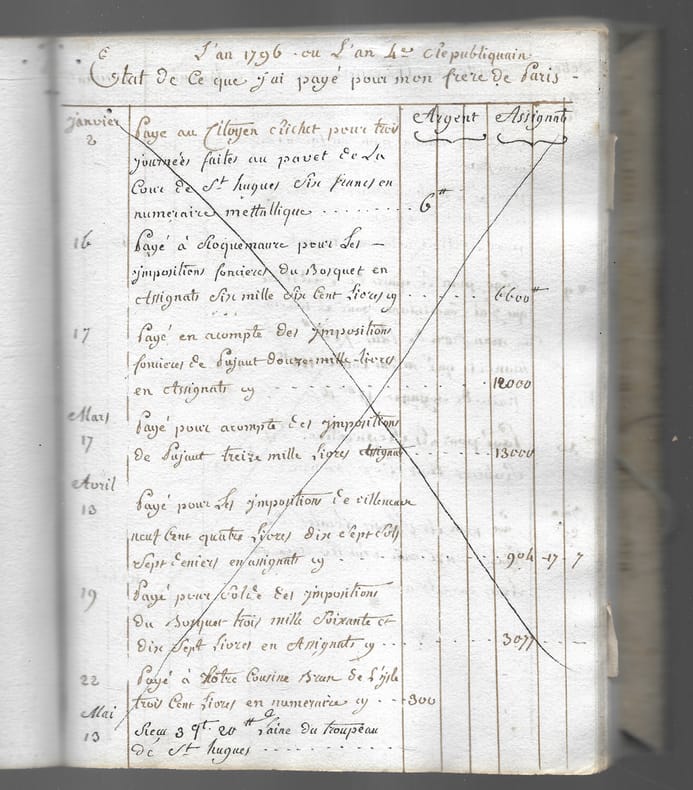 L'an 1796 ou L'an 4e Republiquain
Etat de Ce que j'ai payé pour mon frere de Paris -
Argent Assignats
janvier
2 Payé au Citoyen Crichet pour trois
journées faites au pavet de La
Cour de St hugues Six francs en
numeraire mettallique . . . . . . . . 6tt
16 Payé à Roquemaure pour Les -
jmpositions foncieres du Bosquet en
Assignats Six mille Six Cent Livres cy . . . . . 6600tt
17 Payé en acompte des jmpositions
foncieres de Pujaut douze mille Livres
en Assignats cy . . . . . . . . . 12000
Mars
17 Payé pour acompte des jmpositions
de Pujaut treize mille Livres Assignats . . . . . 13000
Avril
13 Payé pour Les jmpositions de villeneuve
neuf Cent quatre Livres dix Sept Sols
Sept deniers en assignats cy . . . . . . . 904 - 17 - 7
19 Payé pour Solde des jmpositions
du Bosquet trois mille Soixante et
dix Sept Livres en Assignats cy . . . . . . 3077
22 Payé à Notre Cousine Brun de L'jsle
trois Cent Livres en numeraire cy . . . 300
Mai
13 Reçu 3 qt. 20 tt Laine du troupeau
de St hugues . . . . . . . . .